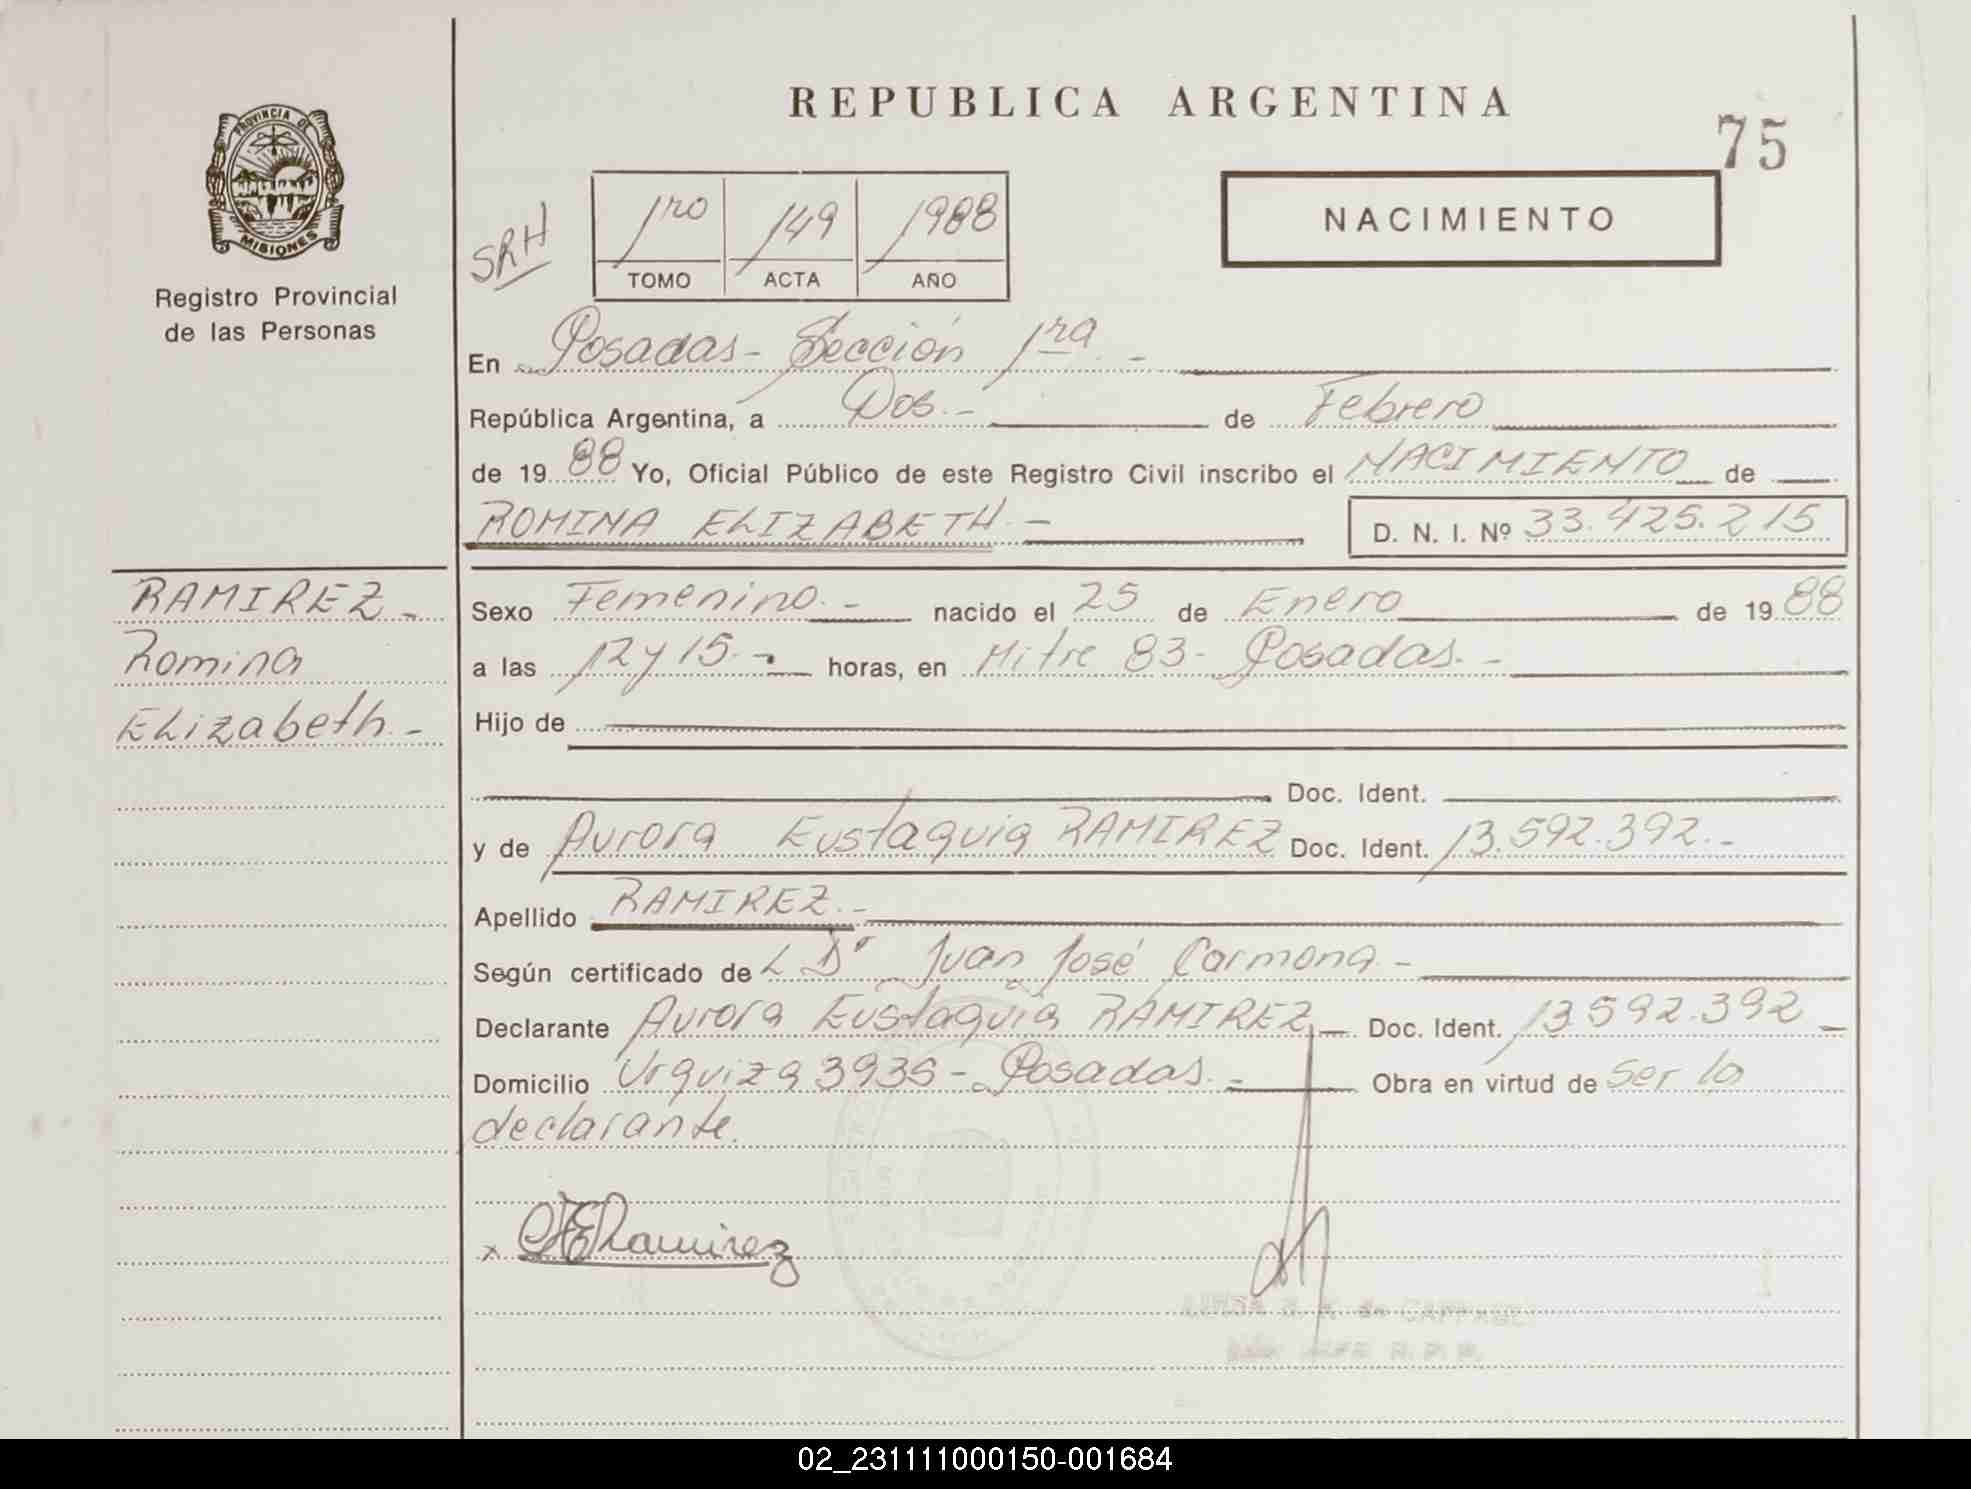 REPUBLICA ARGENTINA
75
PROVINCIA DE
MISIONES
Registro Provincial
de las Personas
SRH
1ro 149 1988
TOMO ACTA AÑO
NACIMIENTO
En Posadas - Sección 1ra. -
República Argentina, a Dos. - de Febrero
de 1988 Yo, Oficial Público de este Registro Civil inscribo el NACIMIENTO de
ROMINA ELIZABETH. -
D. N. I. Nº 33.425.215
RAMIREZ -
Romina
ELizabeth. -
Sexo Femenino. - nacido el 25 de Enero de 1988
a las 12 y 15. - horas, en Mitre 83 - Posadas. -
Hijo de
Doc. Ident.
y de Aurora Eustaquia RAMIREZ Doc. Ident. 13.592.392. -
Apellido RAMIREZ. -
Según certificado de L Dr Juan José Carmona. -
Declarante Aurora Eustaquia RAMIREZ - Doc. Ident. 13.592.392 -
Domicilio Urquiza 3935 - Posadas. - Obra en virtud de Ser la
declarante.
x AERamirez
de CAPPAGLI
JEFE R. P. P.
02_231111000150-001684